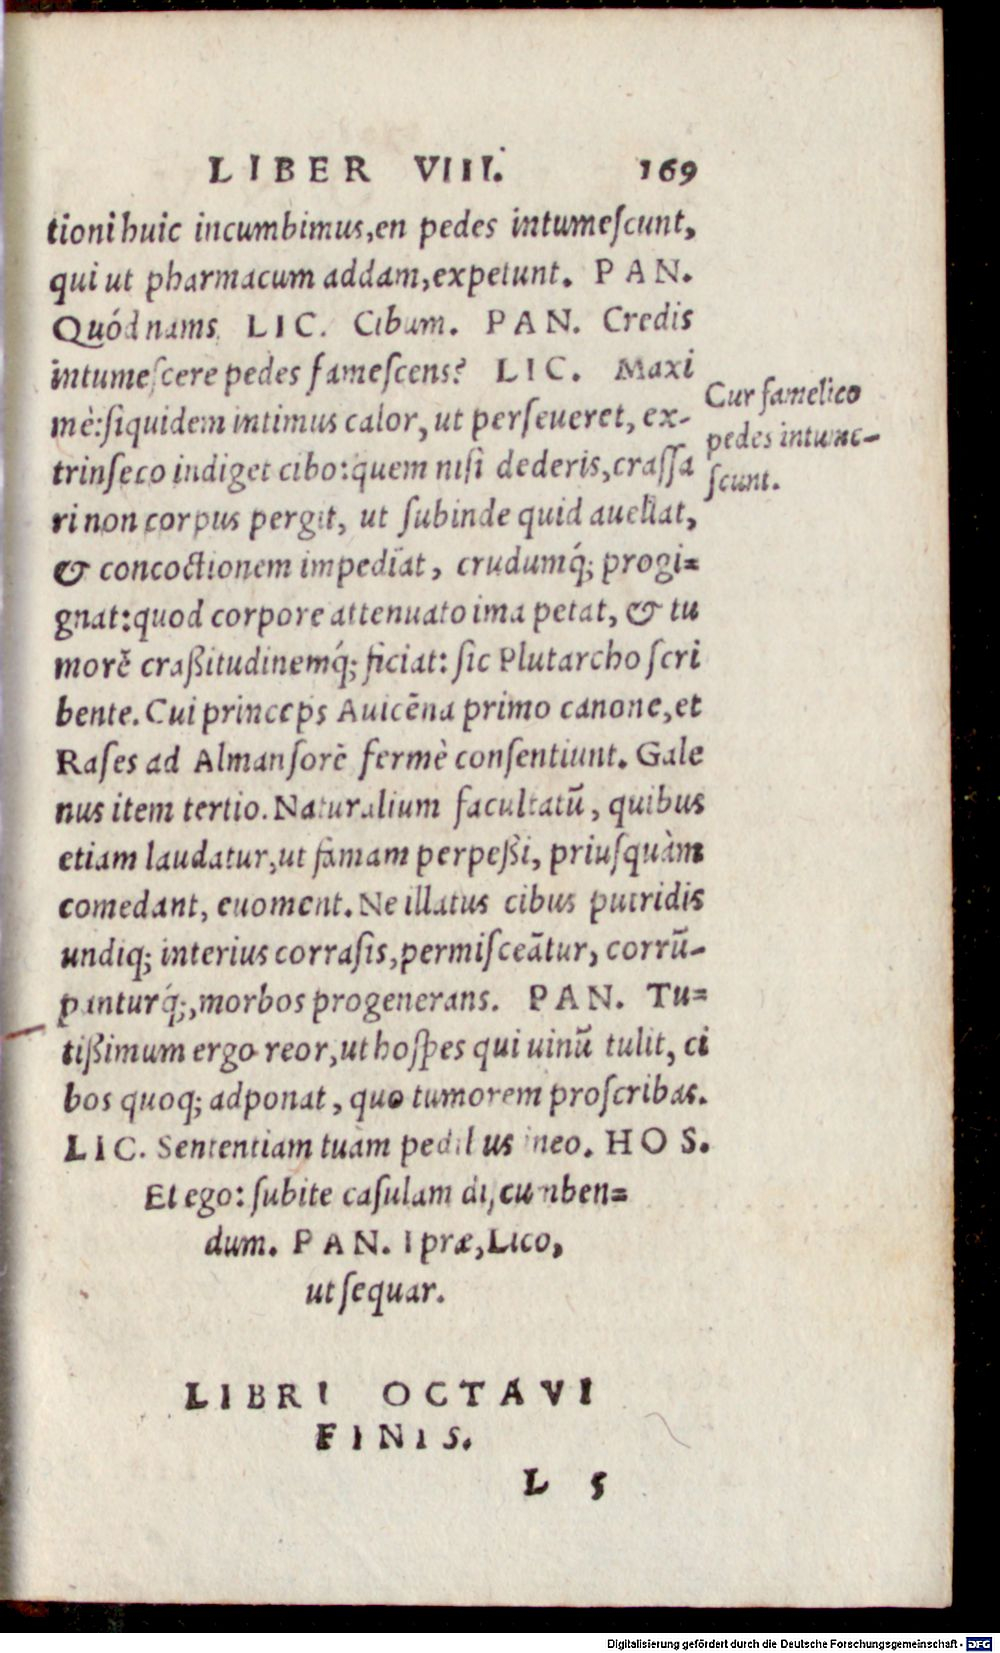 LIBER VIII. 169
tioni huic incumbimus, en pedes intumeſcunt,
qui ut pharmacum addam, expetunt. PAN.
Quódnams LIC. Cibum. PAN. Credis
intumeſcere pedes fameſcens? LIC. Maxi
mè: ſiquidem intimus calor, ut perſeueret, ex-
trinſeco indiget cibo: quem niſi dederis, craſſa
ri non corpus pergit, ut ſubinde quid auellat,
& concoctionem impediat, crudumq́; progi=
gnat: quod corpore attenuato ima petat, & tu
morē craßitudinemq́; ficiat: ſic Plutarcho ſcri
bente. Cui princeps Auicēna primo canone, et
Raſes ad Almanſorē fermè conſentiunt. Gale
nus item tertio. Naturalium facultatū, quibus
etiam laudatur, ut famam perpeßi, priuſquàm
comedant, euoment. Ne illatus cibus putridis
undiq; interius corraſis, permiſceātur, corrū-
panturq́;, morbos progenerans. PAN. Tu=
tißimum ergo reor, ut hoſpes qui uinū tulit, ci
bos quoq; adponat, quo tumorem proſcribas.
LIC. Sententiam tuam pedibus ineo. HOS.
Et ego: ſubite caſulam diſcumben=
dum. PAN. I præ, Lico,
ut ſequar.
Cur famelico
pedes intume-
ſcunt.
LIBRI OCTAVI
FINIS.
L 5
Digitalisierung gefördert durch die Deutsche Forschungsgemeinschaft - DFG